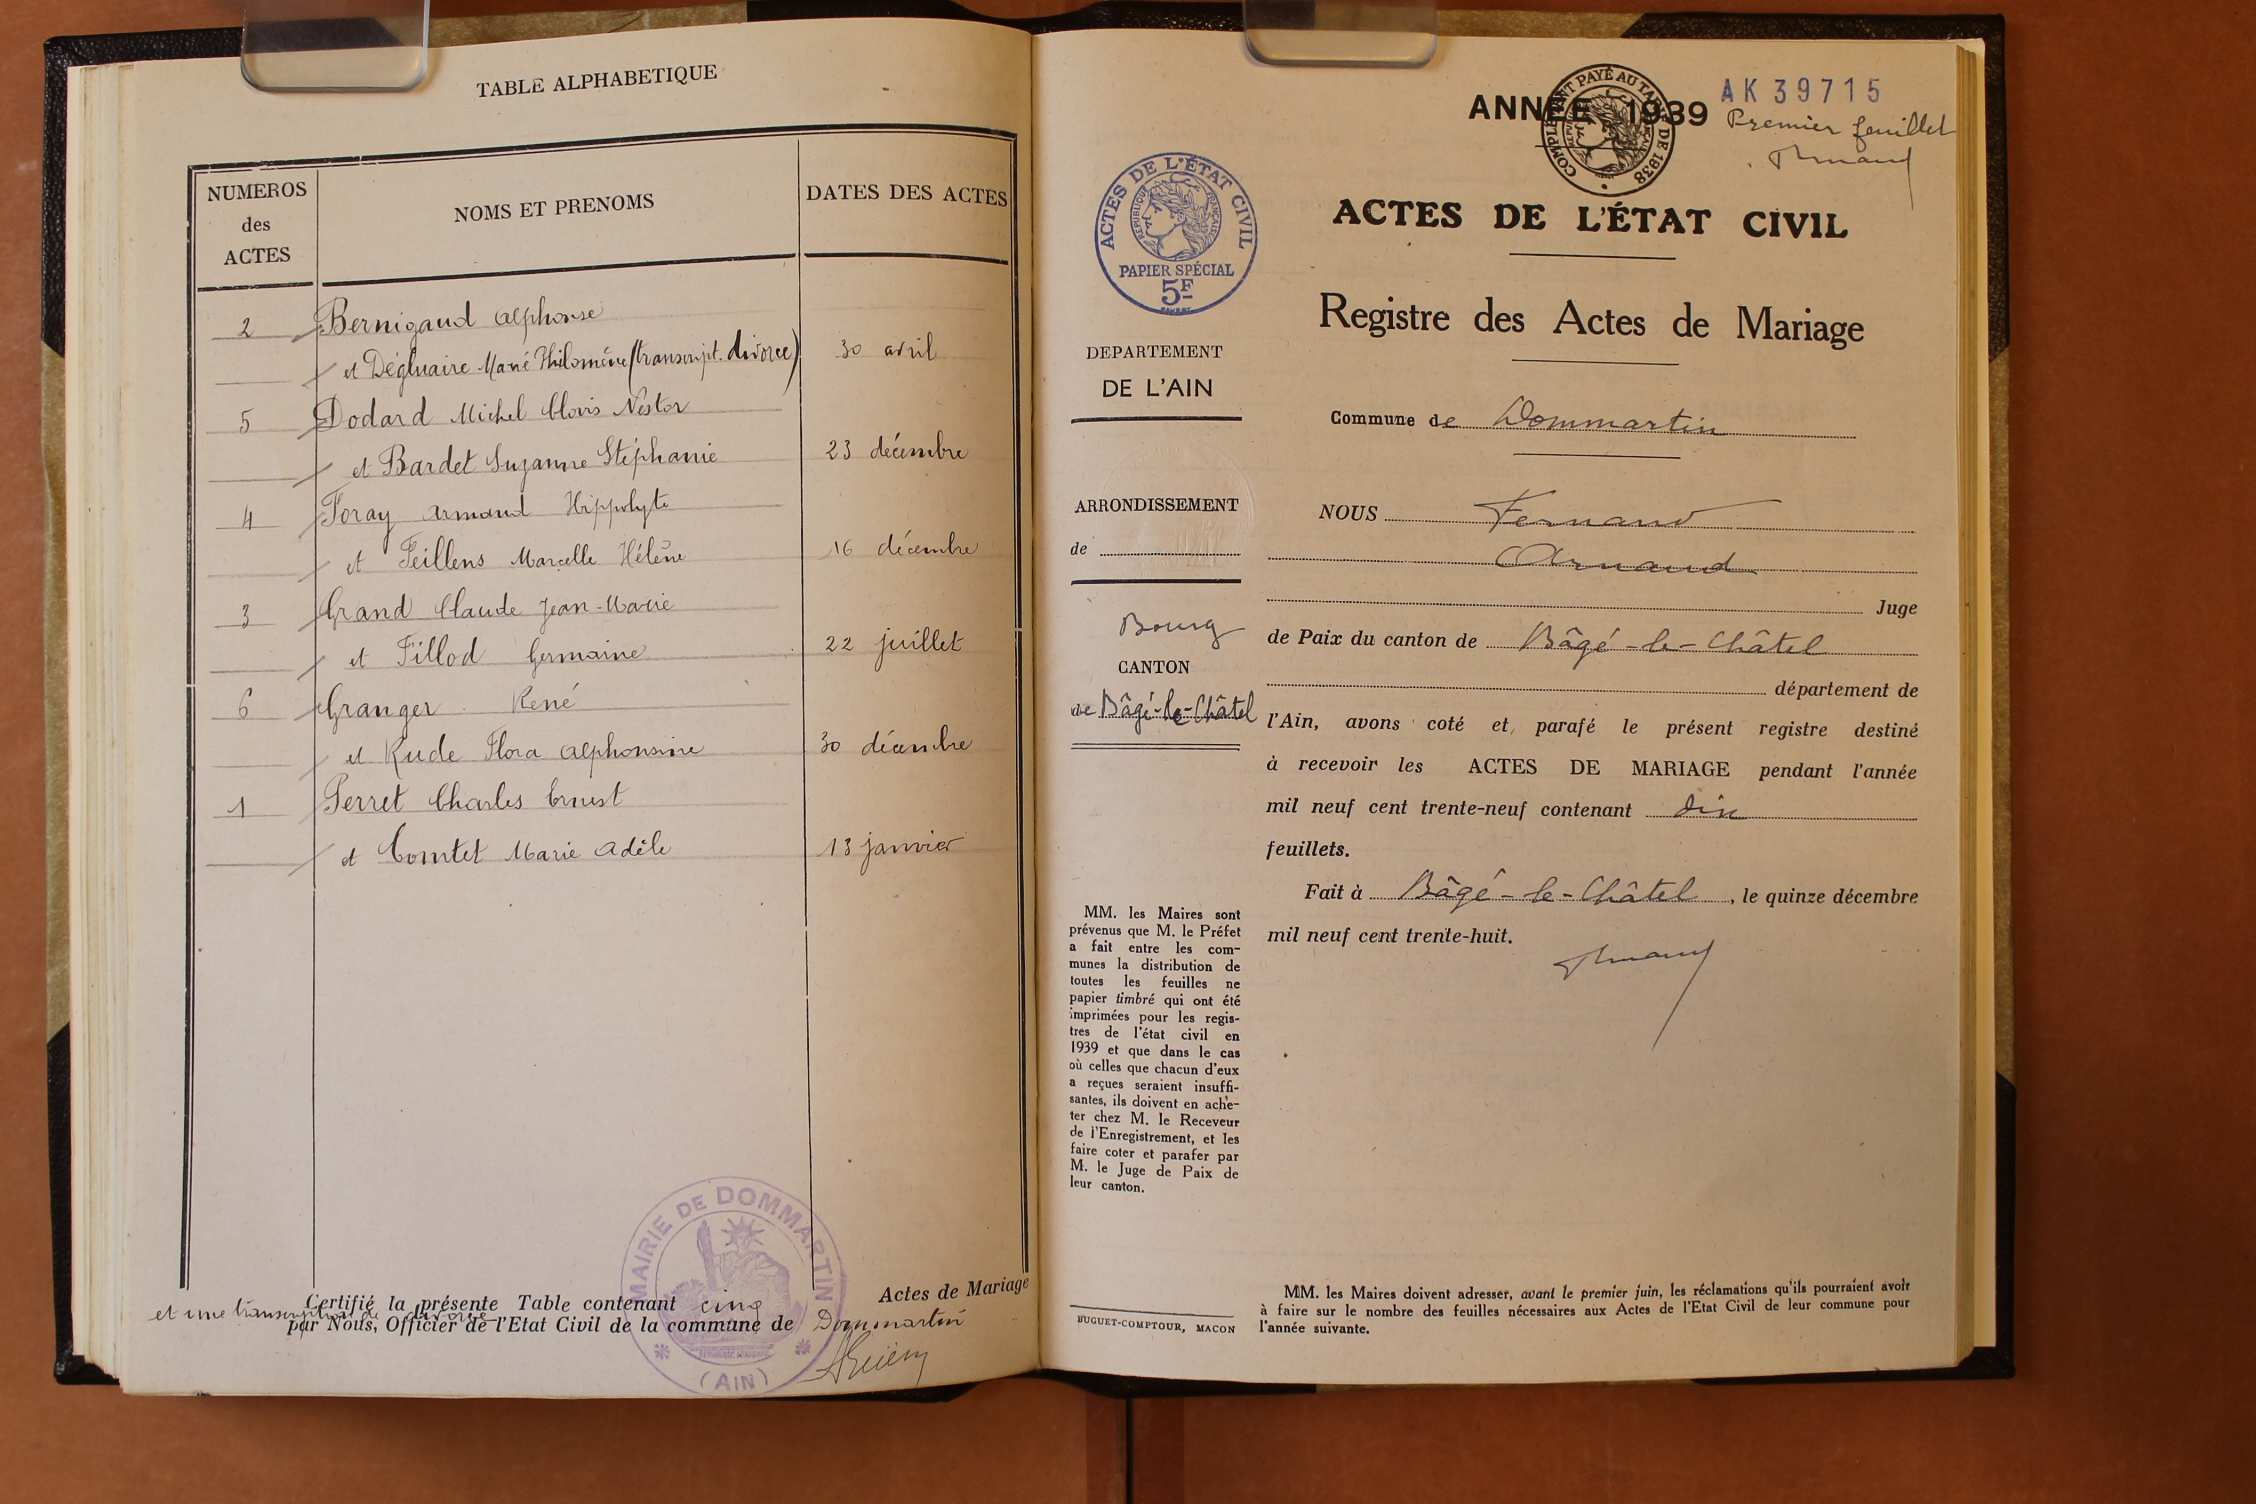 TABLE ALPHABETIQUE
NUMEROS
des
ACTES
NOMS ET PRENOMS
DATES DES ACTES
2 Bernigaud Alphonse
et Dégluaire Marie Philomène (transcript. divorce) 30 avril
5 Dodard Michel Clovis Nestor
et Bardet Suzanne Stéphanie 23 décembre
4 Foray Armand Hippolyte
et Feillens Marcelle Hélène 16 décembre
3 Grand Claude Jean-Marie
et Fillod Germaine 22 juillet
6 Granger René
et Rude Flora Alphonsine 30 décembre
1 Perret Charles Ernest
et Comtet Marie Adèle 13 janvier
Certifié la présente Table contenant cinq Actes de Mariage
et une transcription de divorce
par Nous, Officier de l'Etat Civil de la commune de Dommartin
MAIRIE DE DOMMARTIN
(AIN)
ANNÉE 1939
AK 39715
Premier feuillet
COMPLÉMENT PAYÉ AU TARIF DE 1938
ACTES DE L'ÉTAT CIVIL
RÉPUBLIQUE FRANÇAISE
PAPIER SPÉCIAL
5F
ACTES DE L'ÉTAT CIVIL
Registre des Actes de Mariage
DEPARTEMENT
DE L'AIN
Commune de Dommartin
ARRONDISSEMENT
de
Bourg
CANTON
de Bâgé-le-Châtel
NOUS Fernand
Arnaud
Juge
de Paix du canton de Bâgé-le-Châtel
département de
l'Ain, avons coté et parafé le présent registre destiné
à recevoir les ACTES DE MARIAGE pendant l'année
mil neuf cent trente-neuf contenant dix
feuillets.
Fait à Bâgé-le-Châtel, le quinze décembre
mil neuf cent trente-huit.
MM. les Maires sont
prévenus que M. le Préfet
a fait entre les com-
munes la distribution de
toutes les feuilles ne
papier timbré qui ont été
imprimées pour les regis-
tres de l'état civil en
1939 et que dans le cas
où celles que chacun d'eux
a reçues seraient insuffi-
santes, ils doivent en ache-
ter chez M. le Receveur
de l'Enregistrement, et les
faire coter et parafer par
M. le Juge de Paix de
leur canton.
BUGUET-COMPTOUR, MACON
MM. les Maires doivent adresser, avant le premier juin, les réclamations qu'ils pourraient avoir
à faire sur le nombre des feuilles nécessaires aux Actes de l'Etat Civil de leur commune pour
l'année suivante.